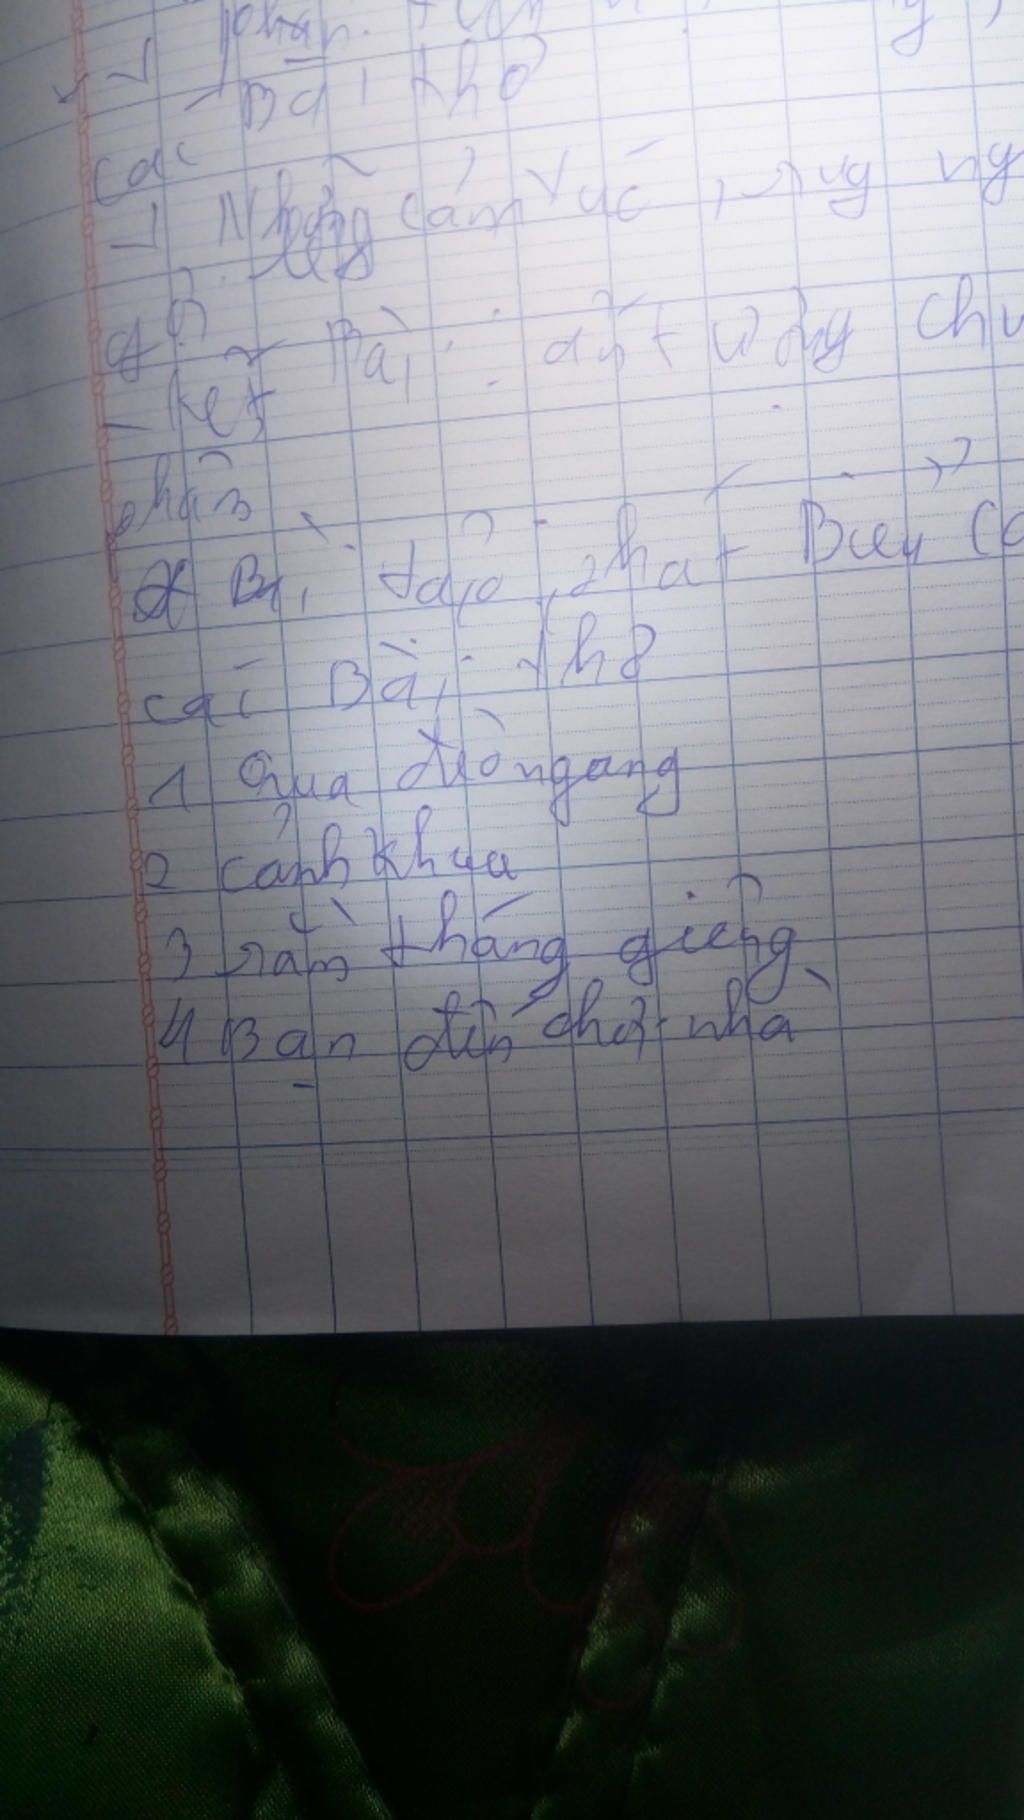 phần.
các Bài thơ
Những cảm xúc, suy ng
- Kết Bài: ấn tượng chu
phần
Bài tập phát Biểu Cả
các Bài thơ
1 Qua đèo ngang
2 cảnh khua
3 rằm tháng giêng
4 Bạn đến chơi nhà